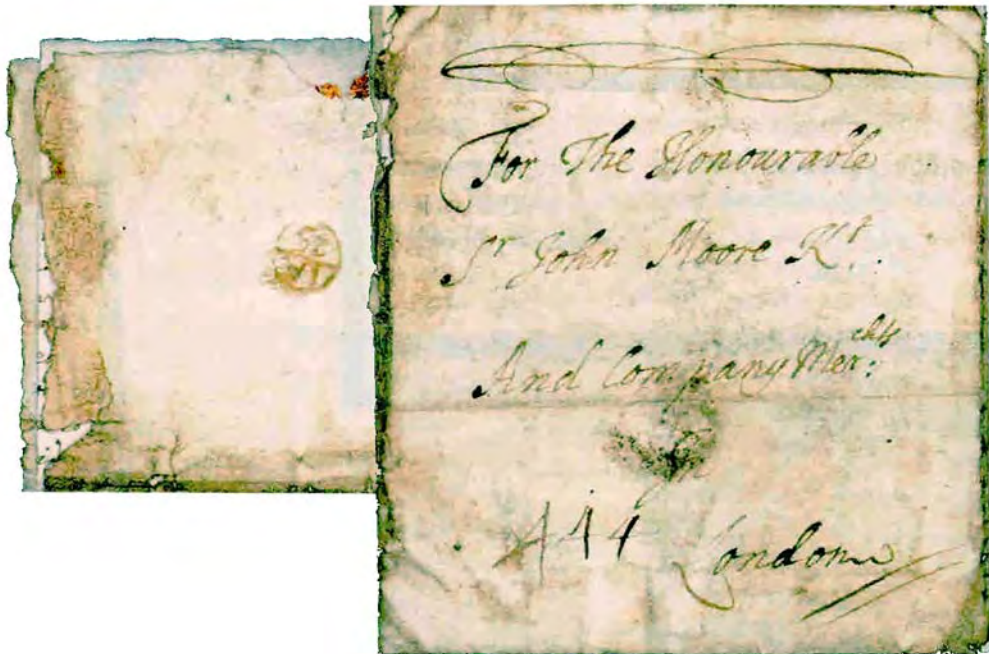 For The Honourable
Sr John Moore Kt.
And Company Merchts:
In
London